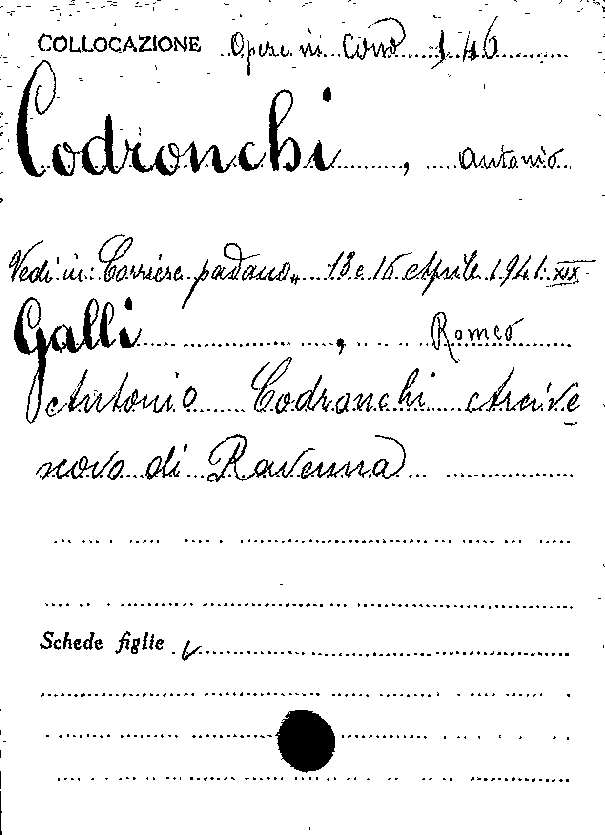 COLLOCAZIONE Opere in Cons 1 46
Codronchi, Antonio
Vedi in: Corriere padano,, 13 e 16 Aprile 1941. XIX.
Galli, Romeo
Antonio Codronchi Arcive
scovo di Ravenna
Schede figlie